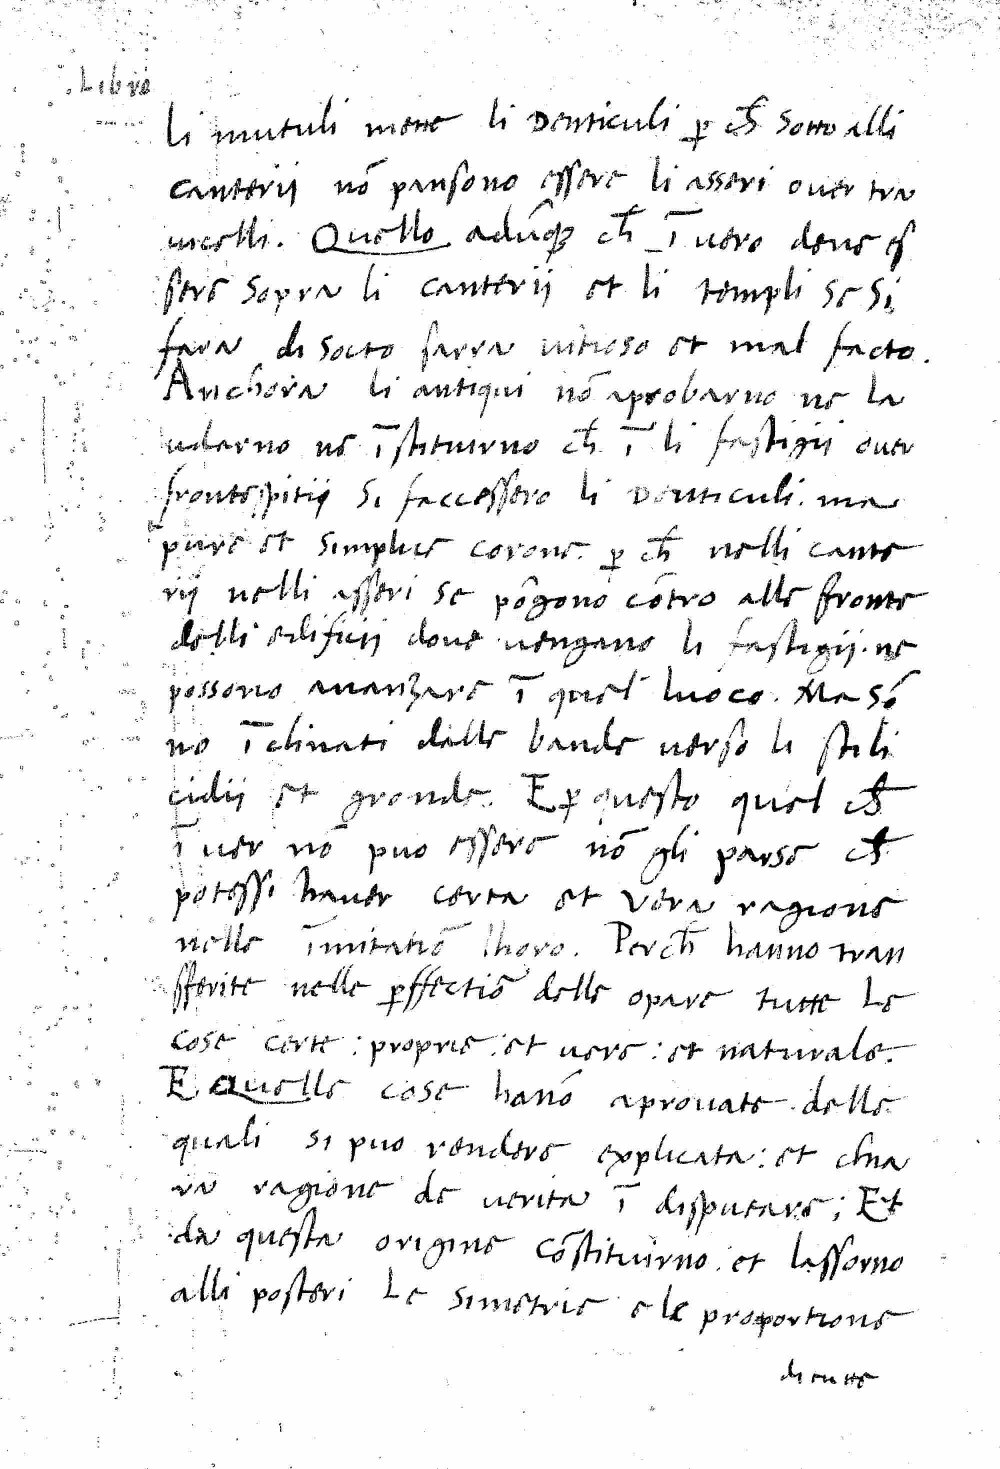 Libro
li mutuli mette li Denticuli p̱ ch̄ Sotto alli
canterij nō pansono essere li asseri over tra
uicelli. Quello adūq3 ch̄ ī vero deue es
sere Sopra li canterij et li templi Se Si
fara di Socto sarra vitioso et mal facto.
Anchora li antiqui nō aprobarno ne la
udarno ne īstituirno ch̄ ī li fastigij over
frontespitij Si faccessero li Denticuli. ma
pure et Simplice corone. p̱ ch̄ nelli cante
rij nelli asseri Se pōgono cōtro alle fronte
delli edificij dove vengano li fastigij. ne
possono auanzare ī quel luoco. Ma Sō
no īclinati dalle bande verso li stili
cidij et gronde. E p̱ questo quel ch̄
ī ver nō puo essere nō gli parse ch̄
potessi haver certa et vera ragione
nelle īmitatiō lhoro. Perch̄ hanno tran
sferite nelle p̱ffectiō delle opare tutte Le
cose certe: proprie: et vere: et naturale.
E Quelle cose hanō aprouate delle
quali si puo rendere explicata: et chia
ra ragione de verita ī disputare; Et
da questa origine cōstituirno. et lassorno
alli posteri Le Simetrie e le proportione
di tutte